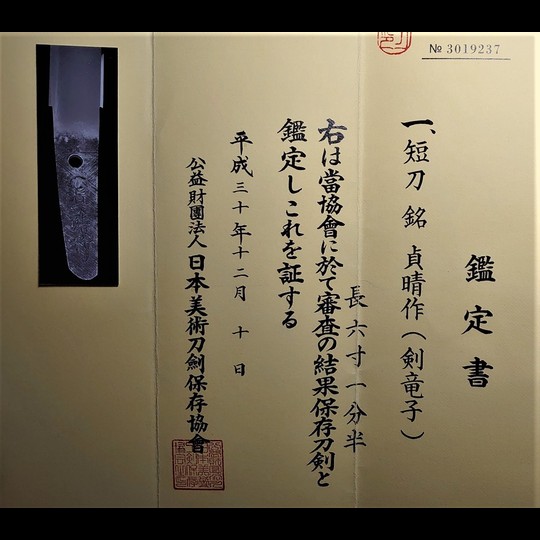 № 3019237
鑑定書
一、短刀 銘 貞晴作(剣竜子)
長六寸一分半
右は當協會に於て審査の結果保存刀剣と
鑑定しこれを証する
平成三十年十二月 十 日
公益財團法人 日本美術刀劍保存協會